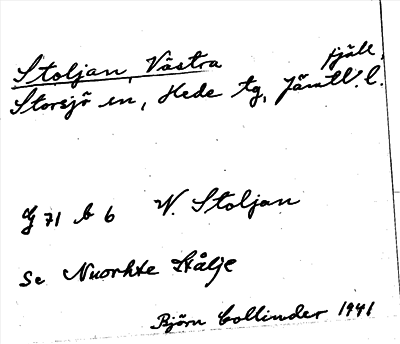 Stoljan, Västra fjäll,
Storsjö sn, Hede tg, Jämtl. l.
71 b 6 V. Stoljan
Se Nuorhte Stålje
Björn Collinder 1941